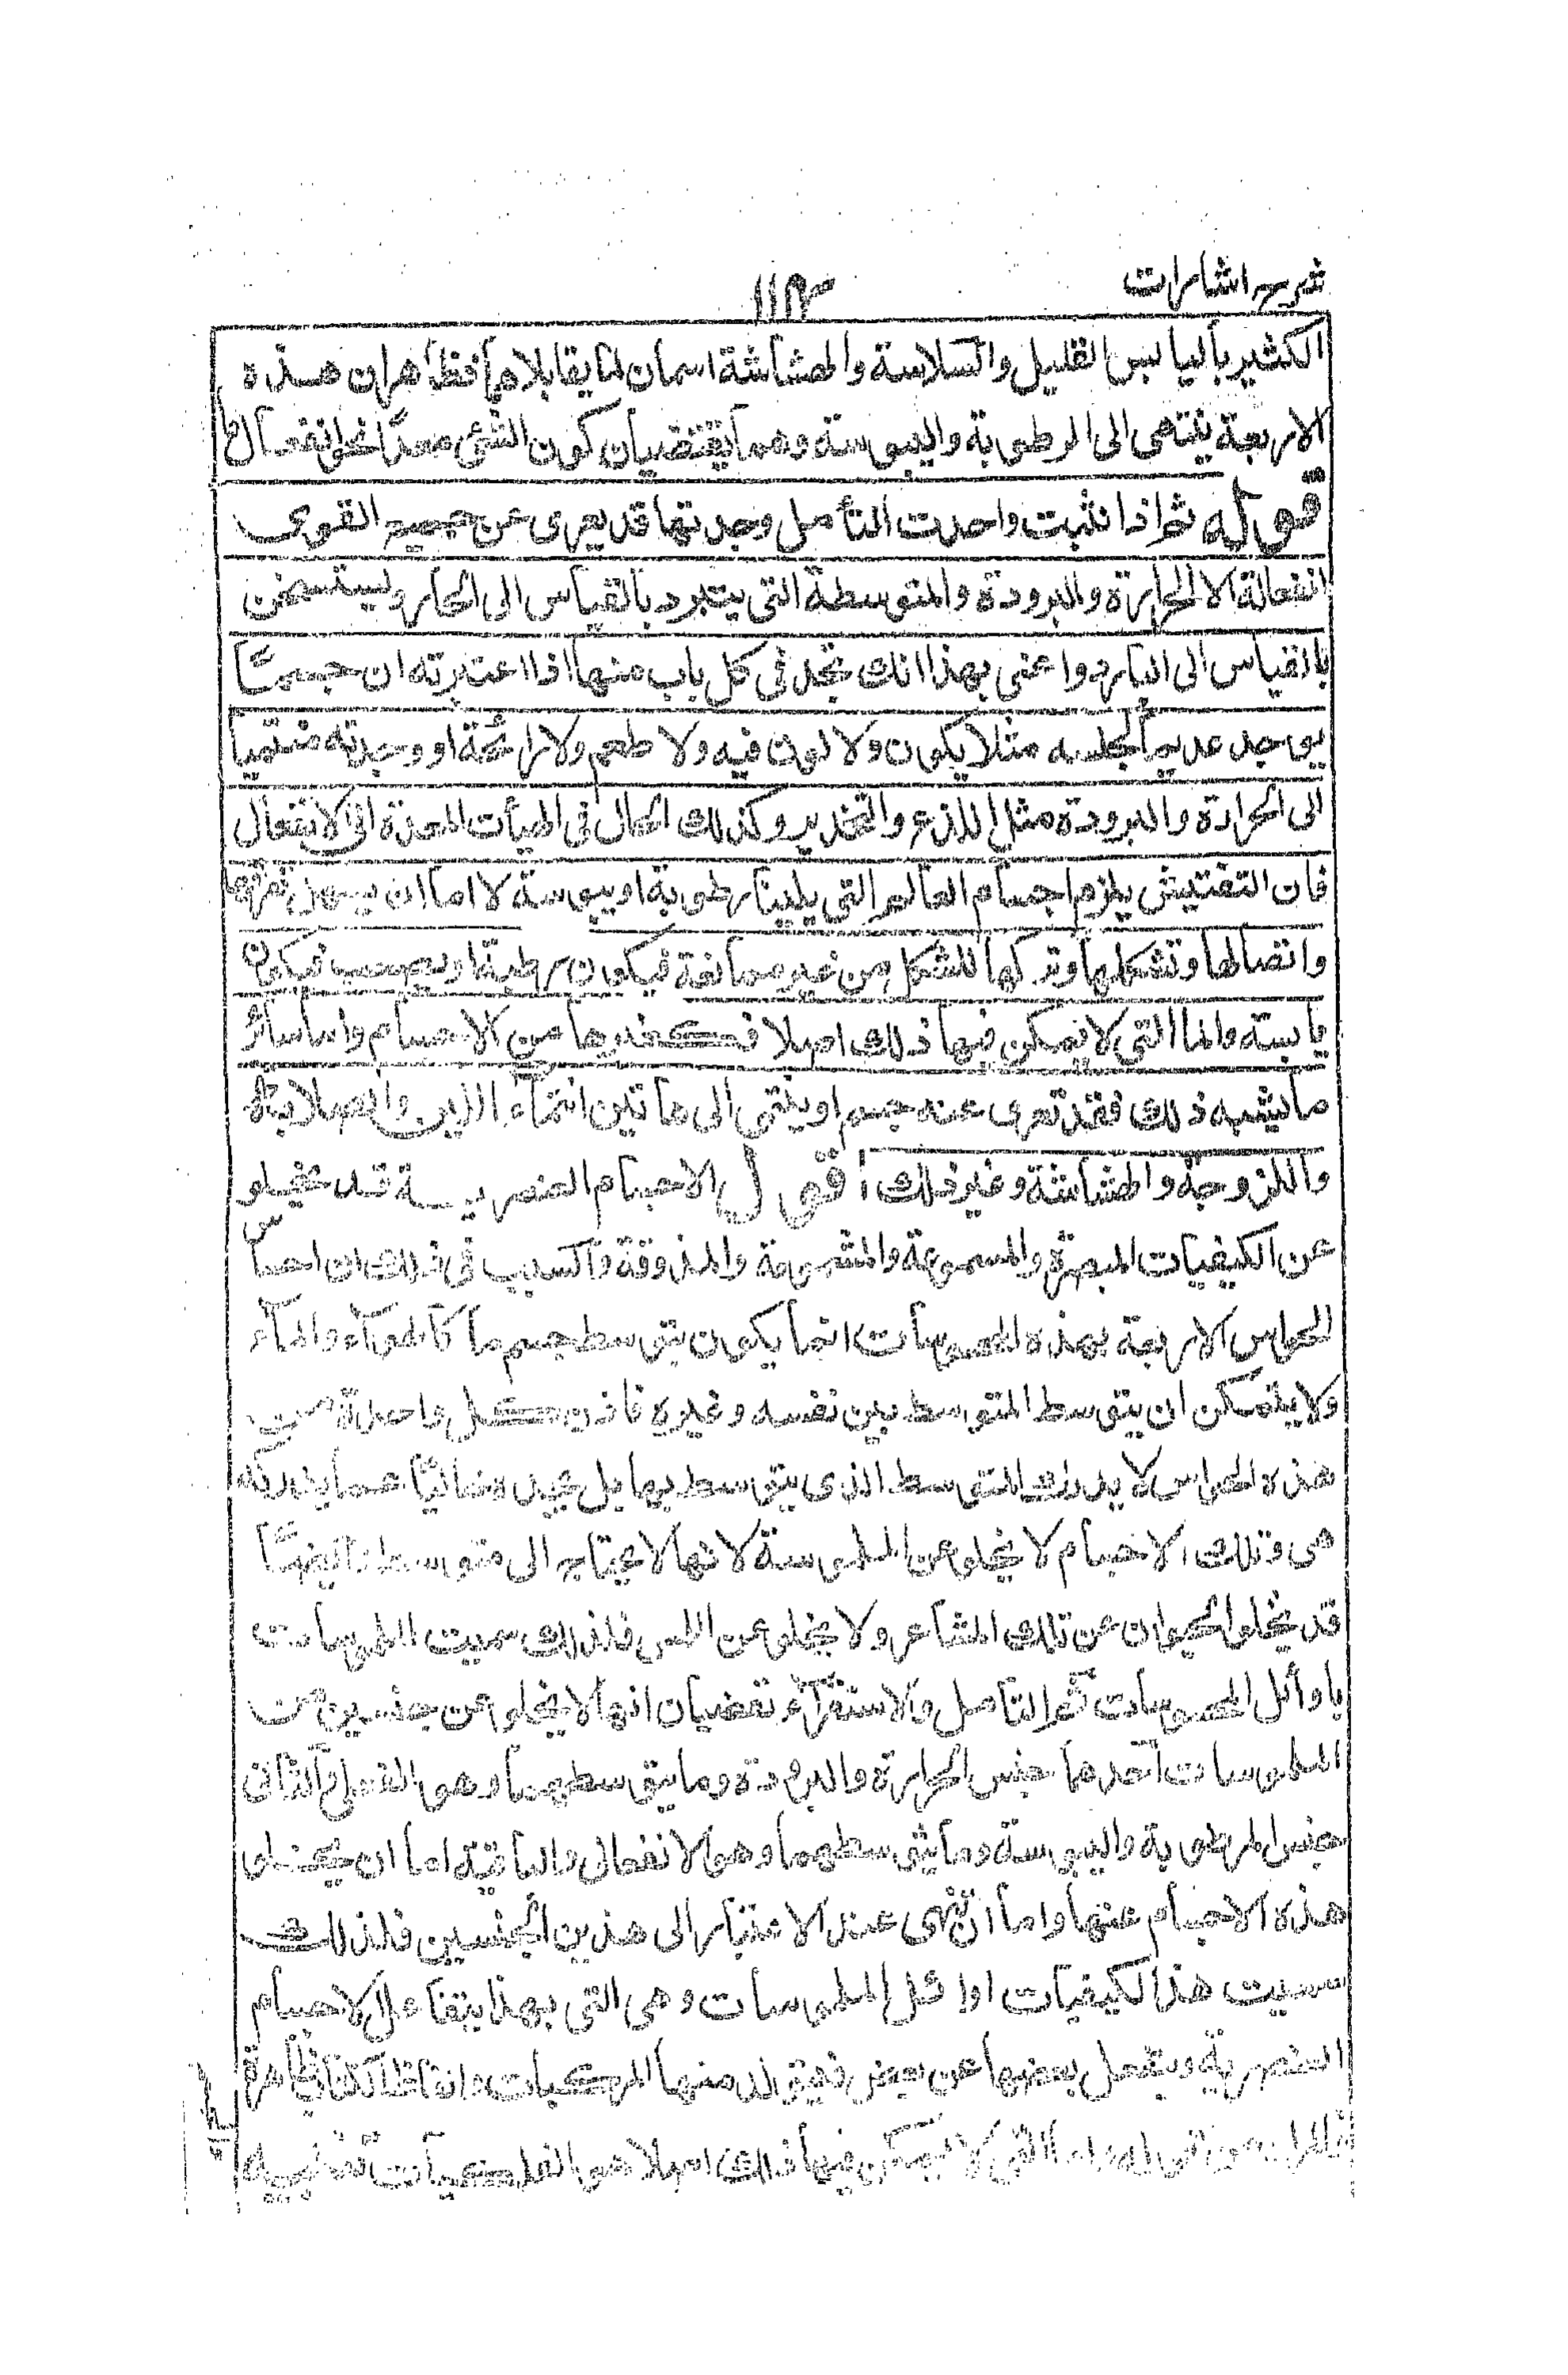 شرح اشارات
١١٣
الكثير باليابس القليل والسلاسة والهشاشة اسمان لما يقابلاهما فظاهر ان هذه
الاربعة ينتهى الى الرطوبة واليبوسة وهما يقتضيان كون الشئ معدا نحو انفعال ما
قوله ثم اذا نثبت واحدت التأمل وجدتها قد يعرى عن جميع القوى
انفعالة الا الحرارة والبرودة والمتوسطة التى يتبرد بالقياس الى الحار ويستسخن
بالقياس الى البارد واعنى بهذا انك تجد فى كل باب منها اذا اعتبرته ان جسما
يوجد عديما لجنسه مثلا يكون ولا لون فيه ولا طعم ولا رائحة او وجدته منتميا
الى الحرارة والبرودة مثل اللذع والتخدير وكذلك الحال فى الهيأت المعدة الى الانفعال
فان التفتيش يلزم اجسام العالم التى يلينا رطوبة او يبوسة لا اما ان يسهل تفرقها
واتصالها وتشكلها وتركها للشكل من غير ممانعة فيكون رطبة او يصعب فيكون
يابسة واما التى لا يمكن فيها ذلك اصلا فكغيرها من الاجسام واما سائر
ما يشبه ذلك فقد تعرى عنه جسم او ينتمى الى هاتين انتماء اللين والصلابة
واللزوجة والهشاشة وغير ذلك اقول الاجسام العنصرية قد تخلو
عن الكيفيات المبصرة والمسموعة والمشمومة والمذوقة والسبب فى ذلك ان احساس
الحواس الاربعة بهذه المحسوسات انما يكون بتوسط جسم ما كالهواء والماء
ولا يتمكن ان يتوسط المتوسط بين نفسه وغيره فاذن كل واحدة من
هذه الحواس لا يدرك المتوسط الذى يتوسط بها بل يجده خاليا عما يدركه
هى وتلك الاجسام لا يخلو عن الملموسة لانها لا يحتاج الى متوسط وايضا
قد يخلو الحيوان عن تلك المشاعر ولا يخلو عن اللمس فلذلك سميت الملموسات
باوائل المحسوسات ثم التأمل والاستقراء تقضيان انها لا يخلو عن جنسين من
الملموسات احدهما جنس الحرارة والبرودة وما يتوسطهما وهو الفعلى والثانى
جنس الرطوبة واليبوسة وما يتوسطهما وهو الانفعالى والباقية اما ان يخلو
هذه الاجسام عنها واما ان تنتهى عند الاعتبار الى هذين الجنسين فلذلك
سميت هذا الكيفيات اوائل الملموسات وهى التى بهذا يتفاعل الاجسام
العنصرية وينفعل بعضها عن بعض فيتولد منها المركبات والفاظ الكتاب ظاهرة
التى لا يمكن فيها ذلك اصلا هو الفلكيات تنبيه